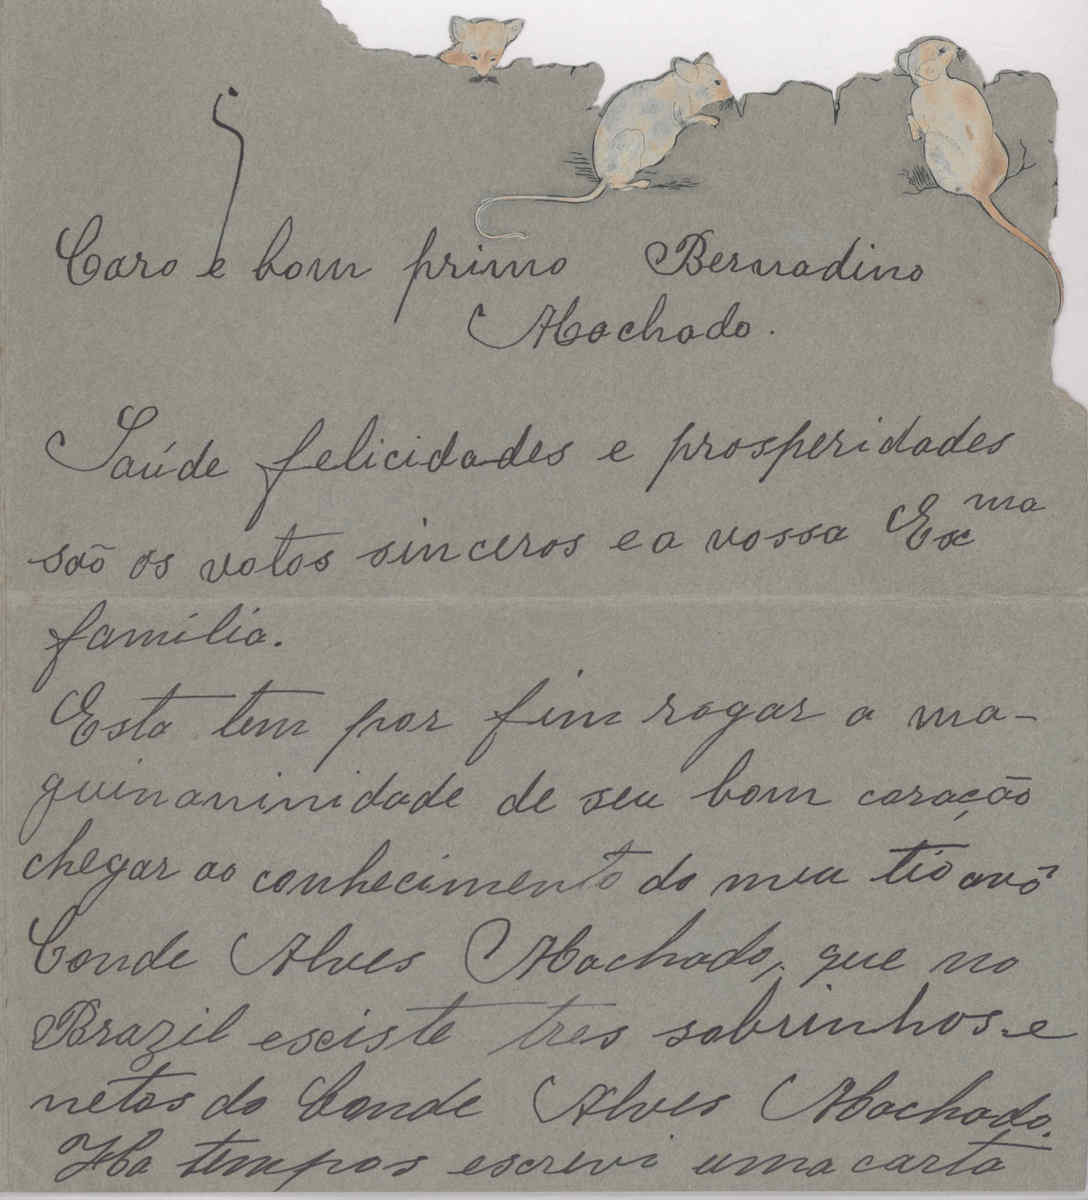 Caro e bom primo Bernadino
Machado.
Saúde felicidades e prosperidades
são os votos sinceros e a vossa Ex^ma
familia.
Esta tem por fim rogar a ma-
guinaninidade de seu bom coração
chegar ao conhecimento do meu tio avô
Conde Alves Machado, que no
Brazil esciste tres sobrinhos-e
netos do Conde Alves Machado.
Ha tempos escrevi uma carta